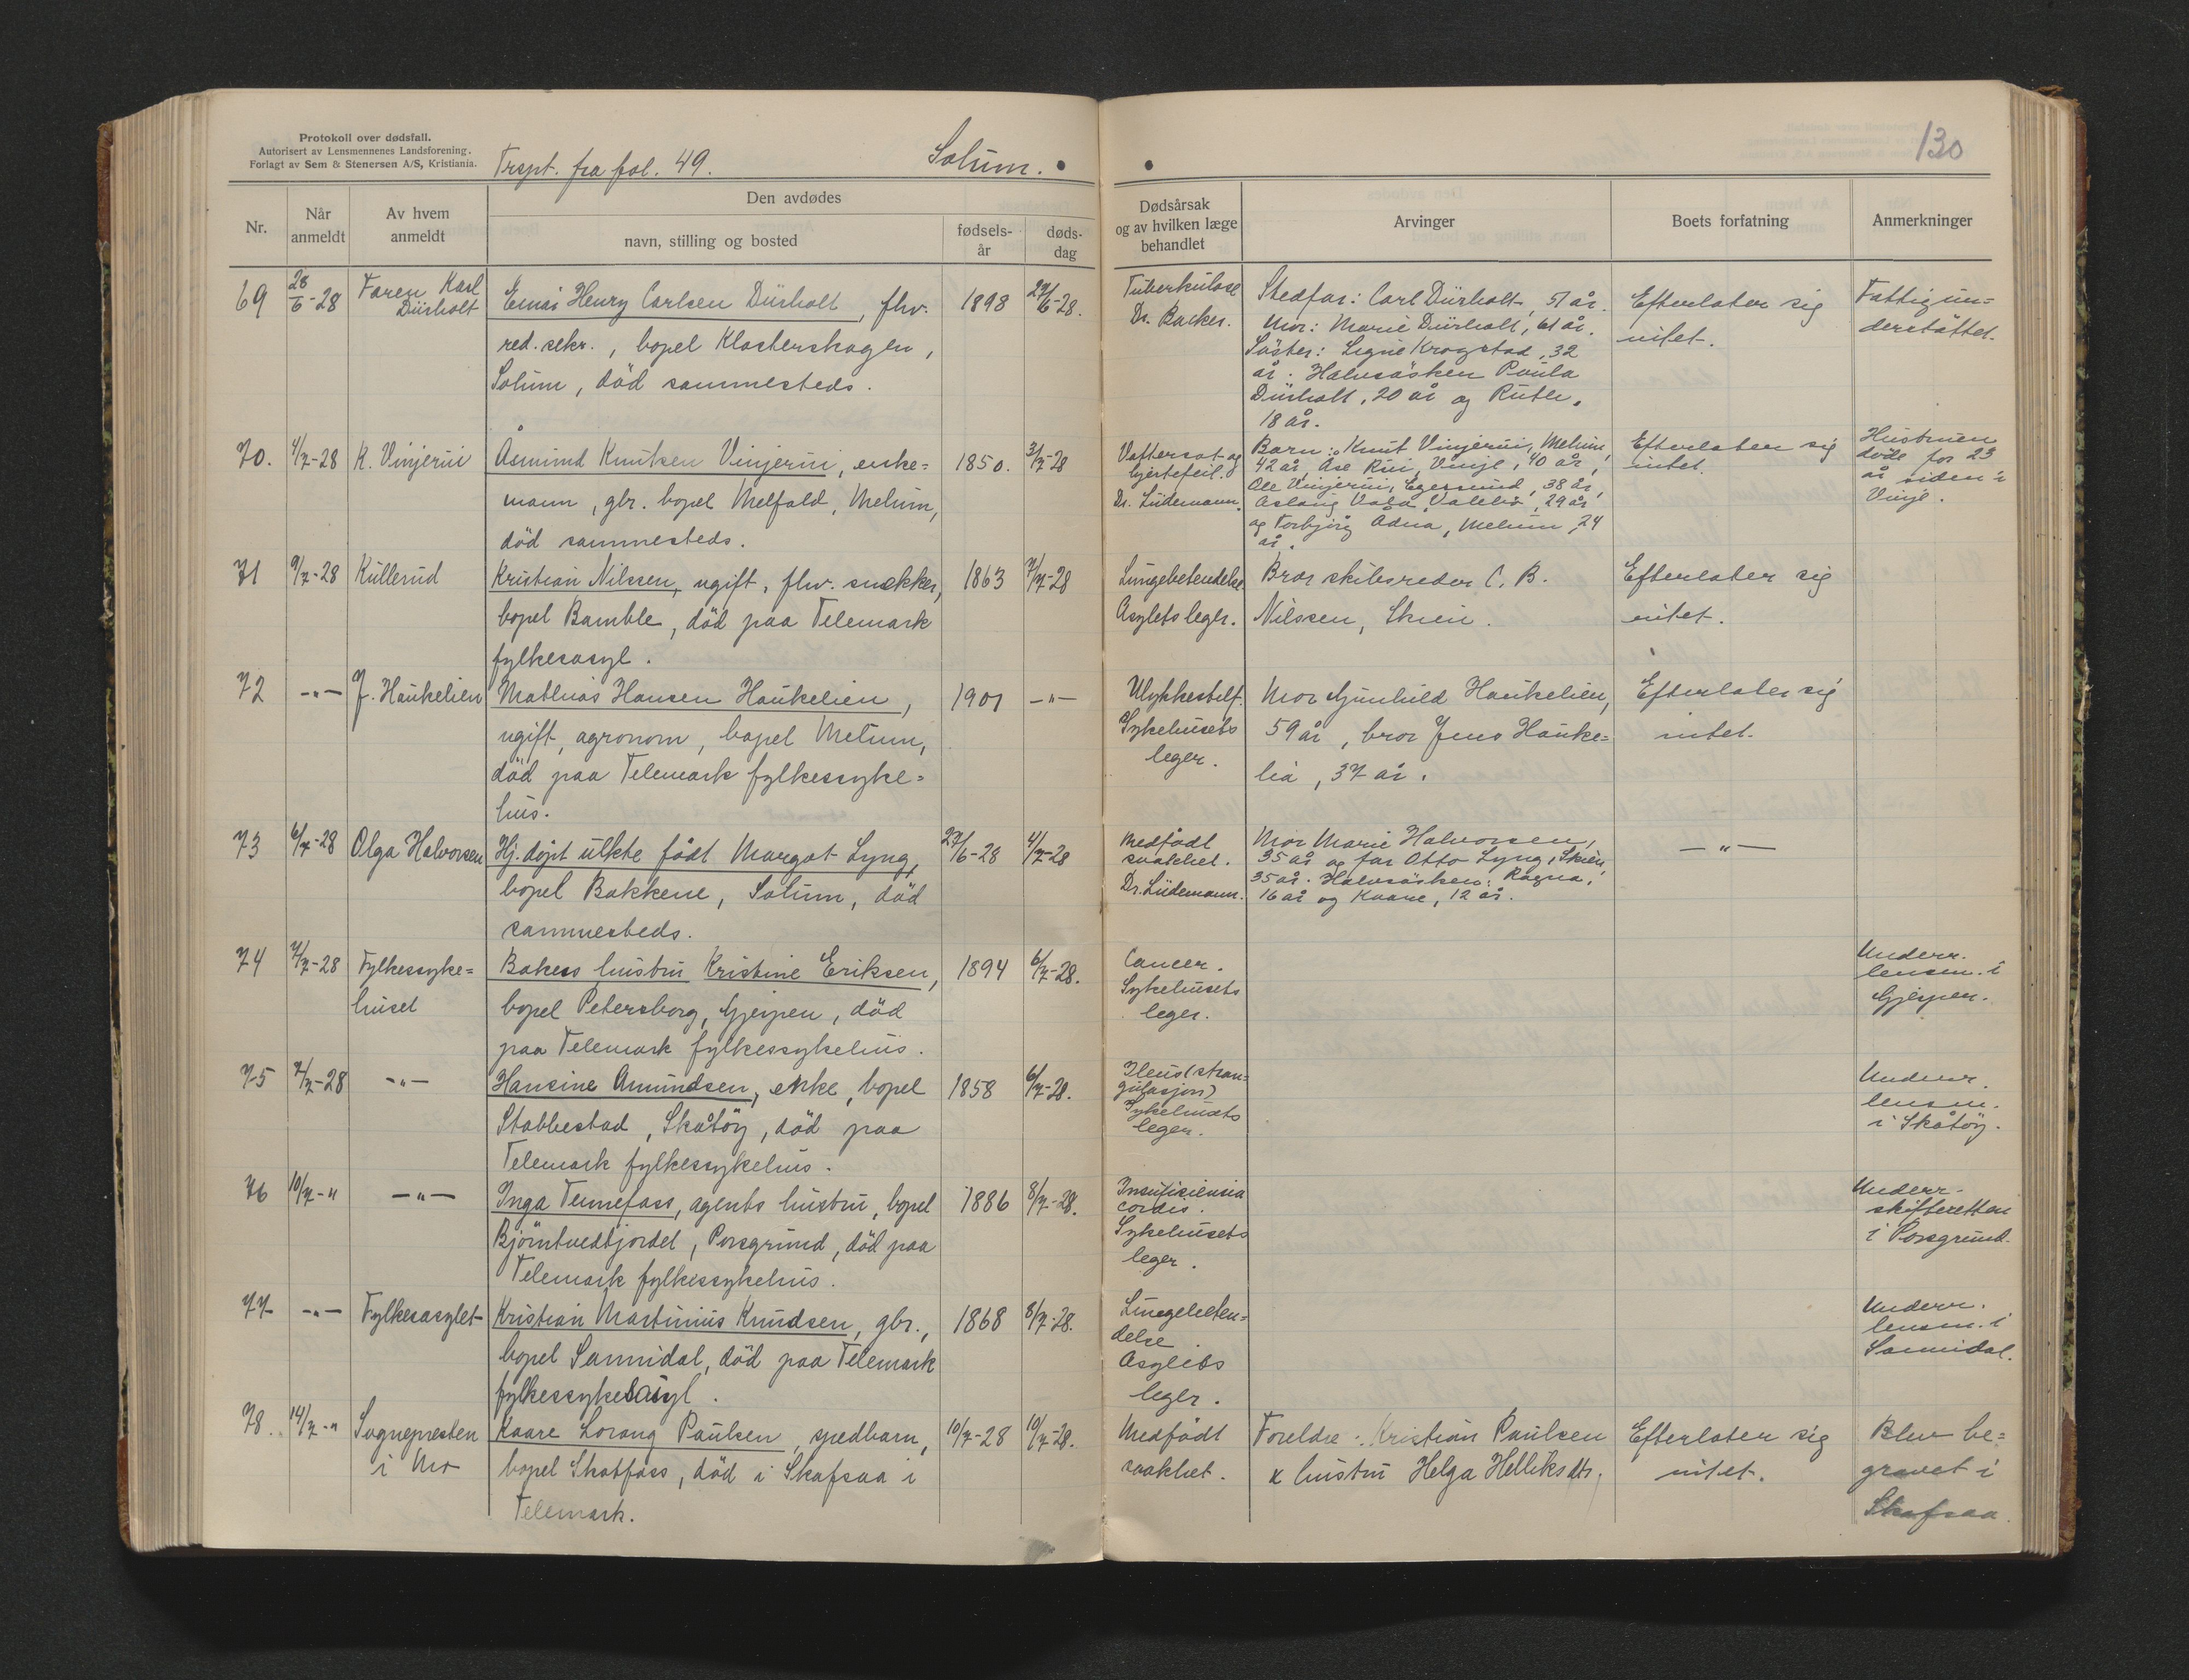 Protokoll over dødsfall.
Autorisert av Lensmennenes Landsforening.
Forlagt av Sem & Stenersen A/S, Kristiania.
Trspt. fra fol. 49.
Solum.
130
Nr.
Når anmeldt
Av hvem anmeldt
Den avdødes
navn, stilling og bosted
fødsels-år
døds-dag
Dødsårsak
og av hvilken læge
behandlet
Arvinger
Boets forfatning
Anmerkninger
69
28/6-28
Faren Karl
Dürholt
Einar Henry Carlsen Dürholt, fhv.
red. sekr., bopel Klosterskogen,
Solum, död sammesteds.
1898
27/6-28.
Tuberkulose
Dr. Backer.
Stedfar: Carl Dürholt, 51 år.
Mor: Marie Dürholt, 61 år.
Söster: Signe Krogstad, 32
år. Halvsösken Paula
Dürholt, 20 år og Ruth,
18 år.
Efterlater sig
intet.
Fattigun=
derstöttet.
70.
4/7-28
K. Vinjerui
Åsmund Knutsen Vinjerui, enke=
mann, gbr. bopel Melfald, Melum,
död sammesteds.
1850.
3/7-28
Vattersot og
hjertefeil.
Dr. Lüdemann.
Barn: Knut Vinjerui, Melum,
42 år, Åse Rui, Vinje, 40 år,
Ole Vinjerui, Egersund, 38 år,
Aslaug Vala, Valebö, 29 år
og Torbjörg Ådna, Melum 24
år.
Efterlater sig
intet.
Hustruen
döde for 23
år siden i
Vinje.
71
9/7-28
Kullerud
Kristian Nilssen, ugift, fhv. snekker,
bopel Bamble, död paa Telemark
fylkesasyl.
1863
7/7-28
Lungebetendelse
Asylets leger.
Bror skibsreder C. B.
Nilssen, Skien.
Efterlater sig
intet.
72
-"-
J. Haukelien
Mathias Hansen Haukelien,
ugift, agronom, bopel Melum,
död paa Telemark fylkessyke=
hus.
1901
-"-
Ulykkestilf.
Sykehusets
leger.
Mor Gunhild Haukelien,
59 år, bror Jens Hauke=
lia, 37 år.
Efterlater sig
intet.
73
6/7-28
Olga Halvorsen
Hj. döpt ulkte født Margot Lyng,
bopel Bakkene, Solum, död
sammesteds.
27/6-28
4/7-28
Medfödt
svakhet.
Dr. Lüdemann.
Mor Marie Halvorsen,
35 år og far Otto Lyng, Skien,
35 år. Halvsösken: Ragna,
16 år og Kaare, 12 år.
-"-
74
7/7-28
Fylkessyke=
huset
Bakers hustru Kristine Eriksen,
bopel Petersborg, Gjerpen, död
paa Telemark fylkessykehus.
1894
6/7-28.
Cancer.
Sykehusets
leger.
Underr.
lensm. i
Gjerpen.
75
7/7-28
-"-
Hansine Amundsen, enke, bopel
Stabbestad, Skåtöy, död paa
Telemark fylkessykehus.
1858
6/7-28.
Ileus (stran=
gulasjon)
Sykehusets
leger.
Underr.
lensm.
i Skåtöy.
76
10/7-"
-"-
Inga Tennefoss, agents hustru, bopel
Björntvedtjordet, Porsgrund, död paa
Telemark fylkessykehus.
1886
8/7-28.
Insuficiensia
cordis.
Sykehusets
leger.
Underr.
skifteretten
i Porsgrund.
77
-"-
Fylkesasylet
Kristian Martinius Knudsen, gbr.,
bopel Sannidal, död paa Telemark
fylkessykeasyl.
1868
8/7-28.
Lungebeten=
delse
Asylets
leger.
Underr.
lensm. i
Sannidal.
78.
14/7-"
Sognepresten
i Mo
Kaare Lorang Paulsen, spedbarn,
bopel Skotfoss, död i Skafsaa i
Telemark.
10/7-28
10/7-28.
Medfödt
svakhet.
Foreldre: Kristian Paulsen
& hustru Helga Helliksdtr.
Efterlater sig
intet.
Blev be=
gravet i
Skafsaa.